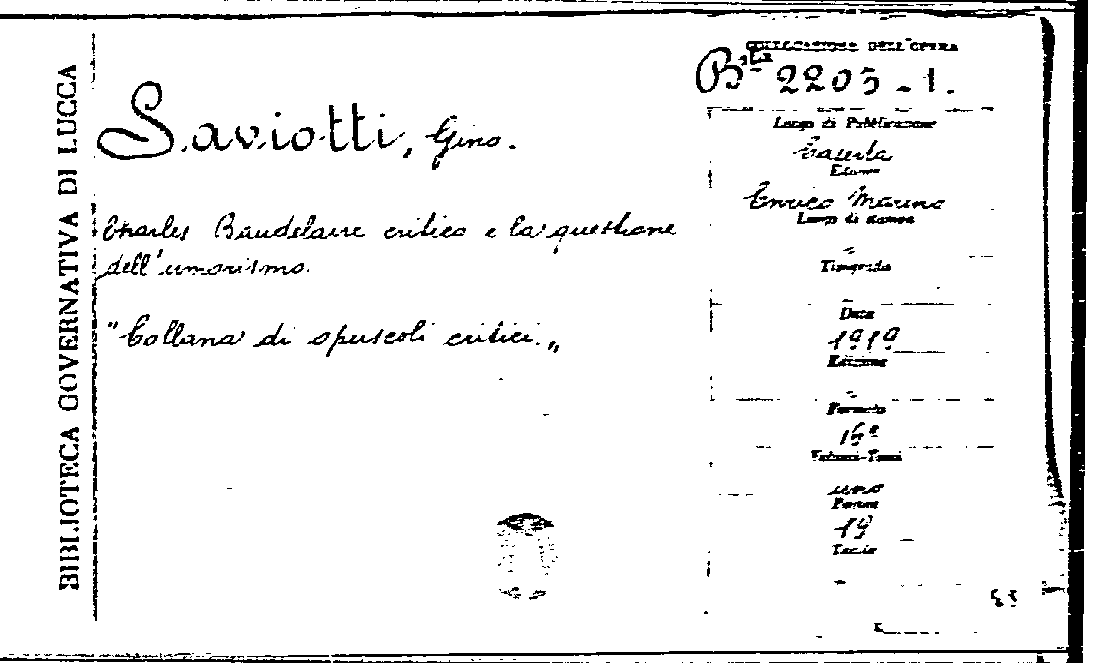 BIBLIOTECA GOVERNATIVA DI LUCCA
Saviotti, Gino.
Charles Baudelaire critico e la questione
dell'umorismo.
"Collana di opuscoli critici.„
COLLOCAZIONE DELL'OPERA
B.ta 2205 - 1.
Luogo di Pubblicazione
Caserta
Editore
Enrico Marino
Luogo di stampa
-
Tipografia
-
Data
1919
Edizione
-
Formato
16º
Volumi-Tomi
uno
Pagine
19
Tavole
-